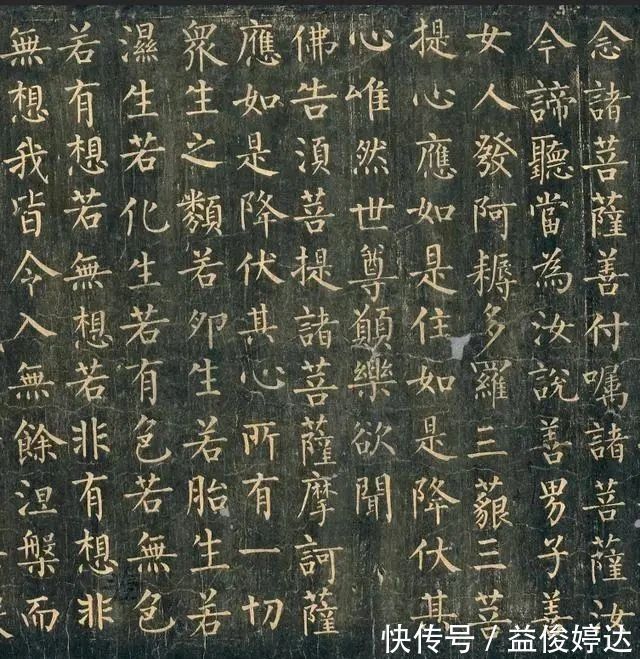 念諸菩薩善付囑諸菩薩汝
今諦聽當為汝說善男子善
女人發阿耨多羅三藐三菩
提心應如是住如是降伏其
心唯然世尊願樂欲聞
佛告須菩提諸菩薩摩訶薩
應如是降伏其心所有一切
眾生之類若卵生若胎生若
濕生若化生若有色若無色
若有想若無想若非有想非
無想我皆令入無餘涅槃而
快传号 / 益俊婷达